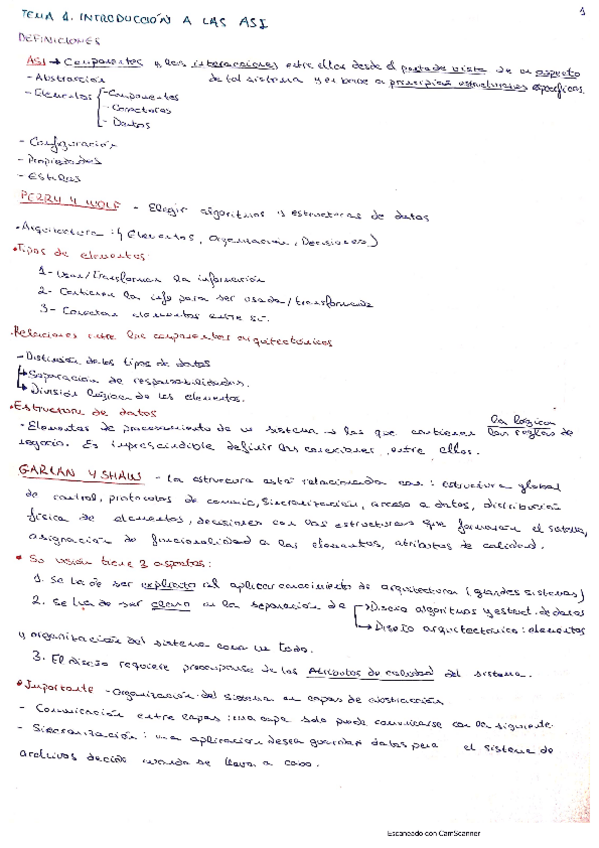 1
TEMA 1. INTRODUCCIÓN A LAS ASI
DEFINICIONES
ASI → Componentes y las interacciones entre ellos desde el punto de vista de un aspecto
- Abstracción del sistema y en base a principios estructurales específicos.
- Elementos - Componentes
- Conectores
- Datos
- Configuración
- Propiedades
- Estilos
PERRY Y WOLF - Elegir algoritmos y estructuras de datos
· Arquitectura: {Elementos, Organización, Decisiones}
· Tipos de elementos:
1- Usan/Transforman la información
2- Contienen la info para ser usada/transformada
3- Conectan elementos entre sí.
· Relaciones entre los componentes arquitectónicos
- Distinción de los tipos de datos
↳ Separación de responsabilidades.
↳ División lógica de los elementos.
· Estructura de datos la lógica
- Elementos de procesamiento de un sistema → los que contienen las reglas de
negocio. Es imprescindible definir las conexiones entre ellos.
GARLAN Y SHAW - La estructura está relacionada con: estructura global
de control, protocolos de comunic, sincronización, acceso a datos, distribución
física de elementos, decisiones con las estructuras que formarán el sistema,
asignación de funcionalidad a los elementos, atributos de calidad.
· Su visión tiene 3 aspectos:
1. Se ha de ser explícito al aplicar conocimiento de arquitecturas (grandes sistemas)
2. Se ha de ser claro en la separación de → Diseño algoritmos y estruct. de datos
→ Diseño arquitectónico: elementos
y organización del sistema como un todo.
3. El diseño requiere preocuparse de los Atributos de calidad del sistema.
· Importante - Organización del sistema en capas de abstracción
- Comunicación entre capas: una capa solo puede comunicarse con la siguiente.
- Sincronización: una aplicación desea guardar datos pero el sistema de
archivos decide cuando se lleva a cabo.
Escaneado con CamScanner